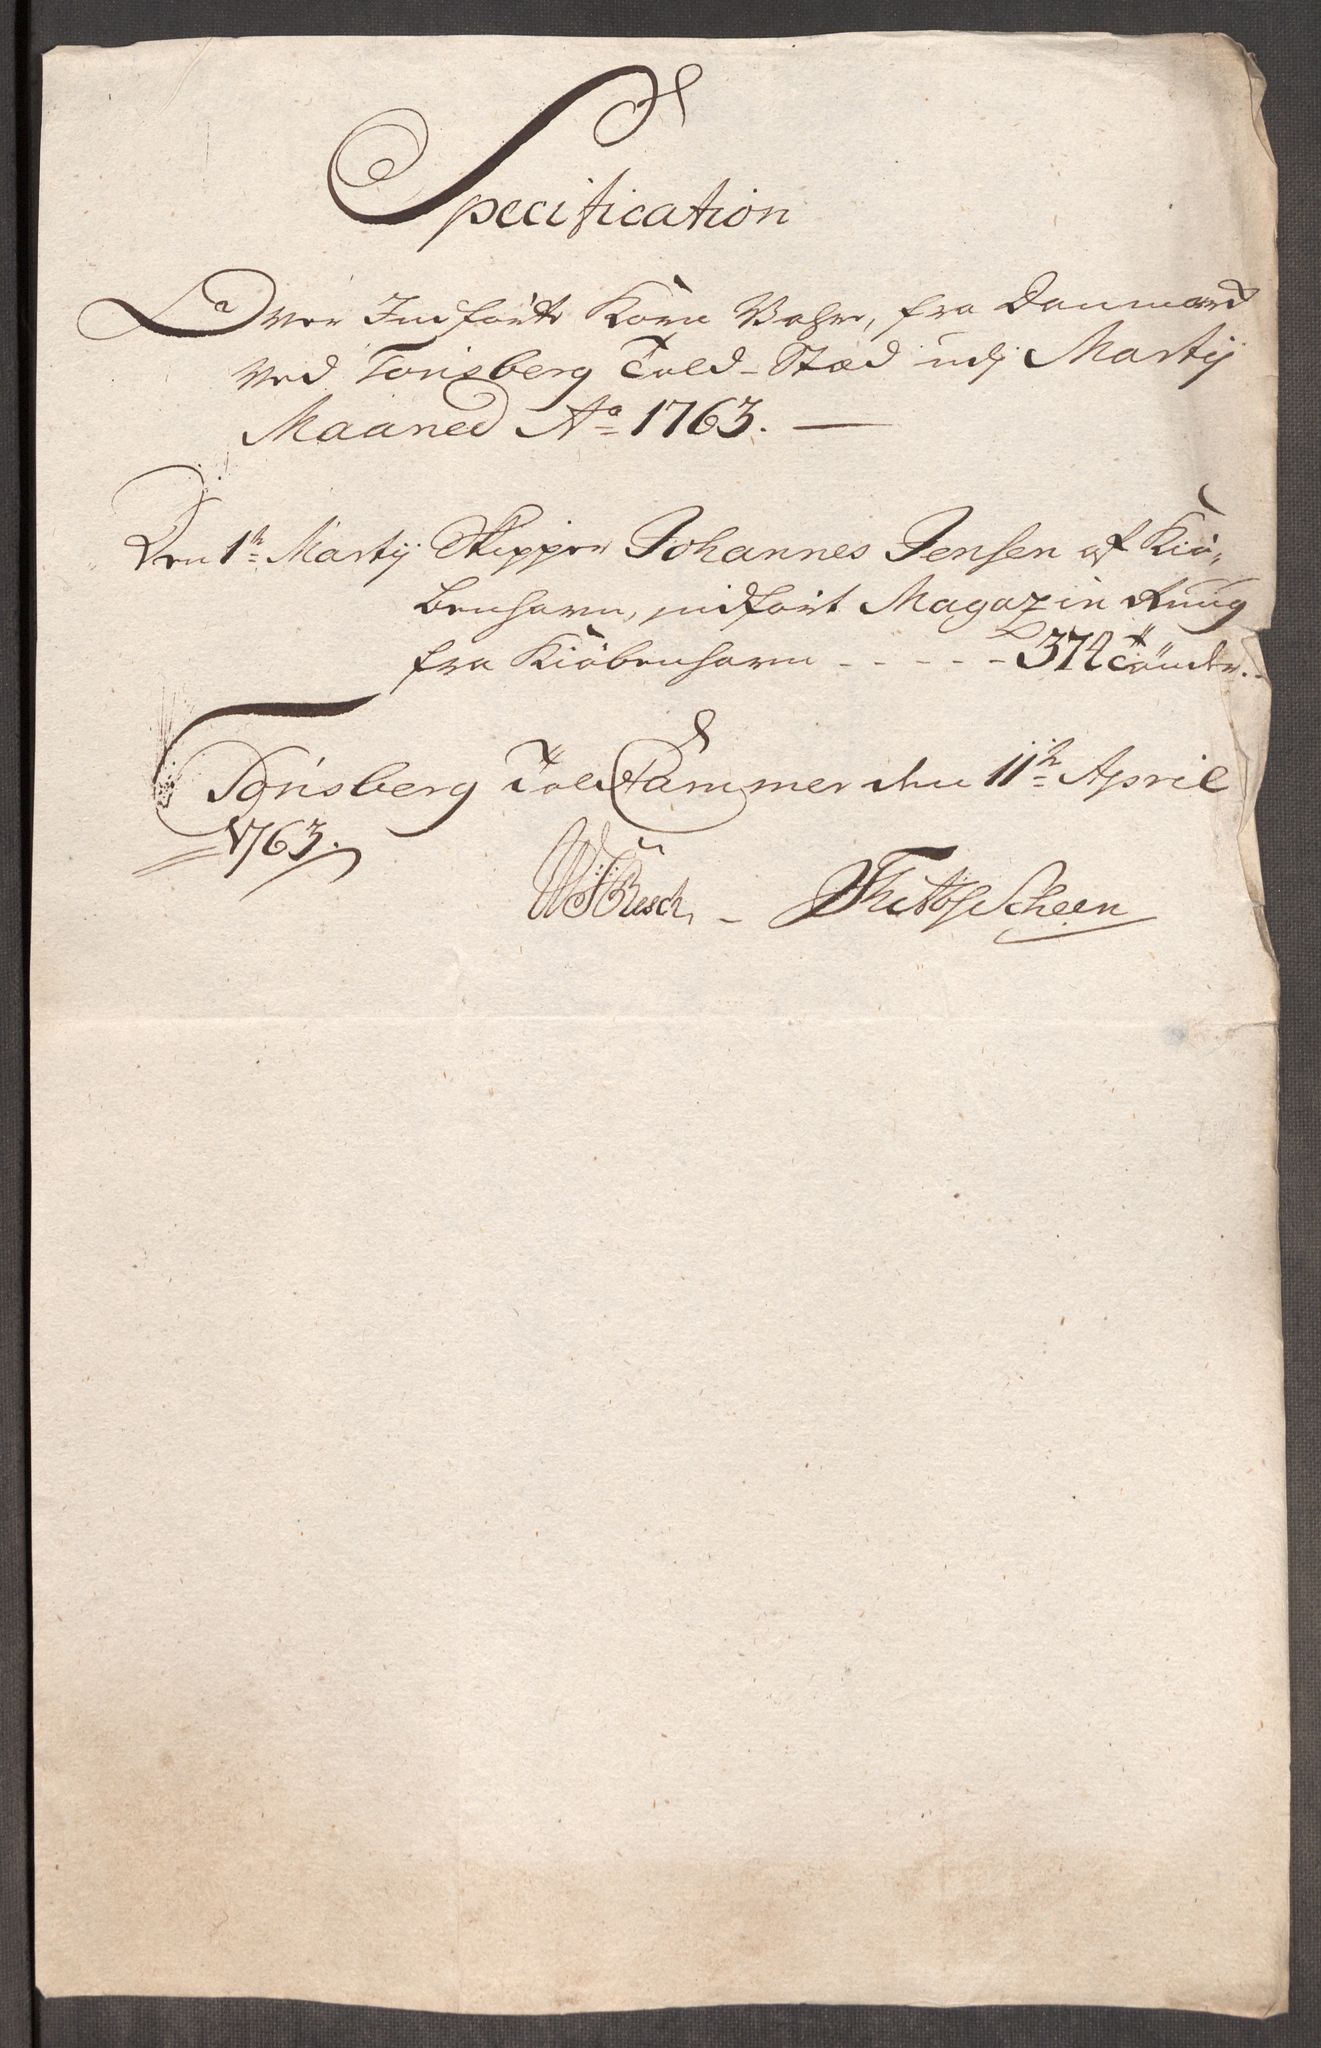 Specification
Over Indförte Korn Vahre, fra Danmarck
Ved Tonsberg Told-Stæd udj Martij
Maaned Ao 1763.
Den 1te Martij Skipper Johannes Jensen af Kiö-
benhavn, indfört Magazin Rug
fra Kiöbenhavn - - - - - 374 Tönder.
Tonsberg Told Cammer den 11te April
1763.
Resch Scheen